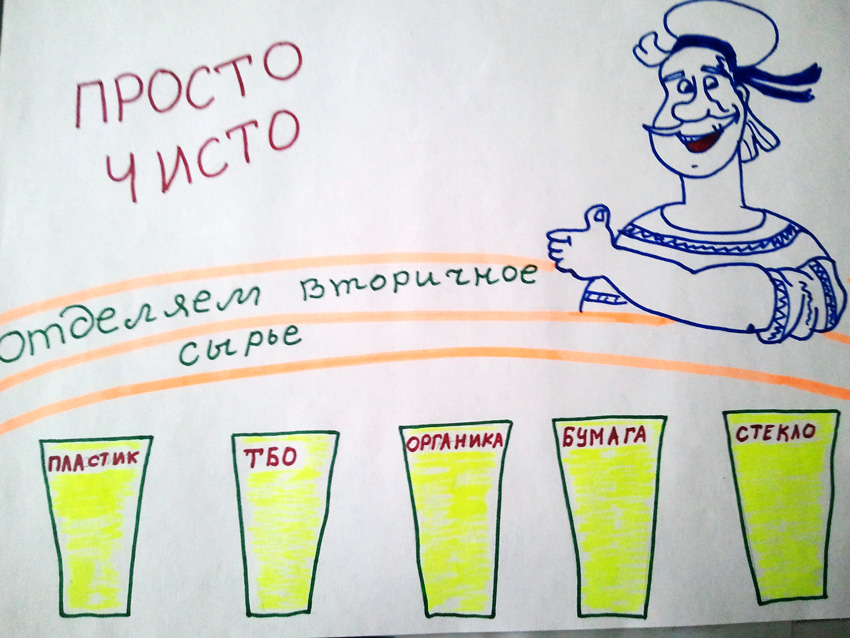 ПРОСТО
ЧИСТО
отделяем вторичное
сырье
ПЛАСТИК
ТБО
ОРГАНИКА
БУМАГА
СТЕКЛО